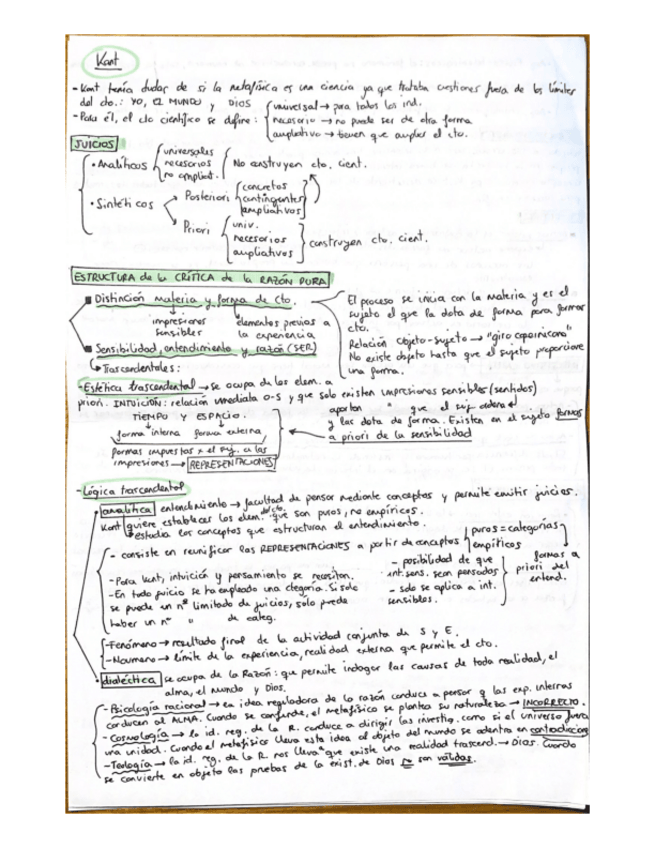 Kant
- Kant tenía dudas de si la metafísica es una ciencia ya que trataba cuestiones fuera de los límites
del cto.: YO, EL MUNDO y DIOS
- Para él, el cto científico se define: universal → para todos los ind.
necesario → no puede ser de otra forma
ampliativo → tienen que ampliar el cto.
JUICIOS
• Analíticos universales
necesarios
no ampliat. No construyen cto. cient.
• Sintéticos Posteriori concretos
contingentes
ampliativos
Priori univ.
necesarios
ampliativos construyen cto. cient.
ESTRUCTURA de la CRÍTICA de la RAZÓN PURA
Distinción materia y forma de cto.
impresiones sensibles
elementos previos a la experiencia
El proceso se inicia con la materia y es el
sujeto el que la dota de forma para formar
cto.
Relación objeto-sujeto → "giro copernicano"
No existe objeto hasta que el sujeto proporcione
una forma.
Sensibilidad, entendimiento y razón (SER)
↳ Trascendentales:
- Estética trascendental → se ocupa de los elem. a
priori. INTUICIÓN: relación inmediata o-s y que solo existen impresiones sensibles (sentidos)
TIEMPO y ESPACIO.
forma interna forma externa
formas impuestas x el suj. a las
impresiones → REPRESENTACIONES
aportan " que el suj. ordena
y las dota de forma. Existen en el sujeto formas
a priori de la sensibilidad
- Lógica trascendental
• analítica entendimiento → facultad de pensar mediante conceptos y permite emitir juicios.
Kant quiere establecer los elem. del cto. que son puros, no empíricos.
↳ estudia los conceptos que estructuran el entendimiento.
- consiste en reunificar las REPRESENTACIONES a partir de conceptos puros = categorías
empíricos
- Para Kant, intuición y pensamiento se necesitan.
- En todo juicio se ha empleado una categoría. Si solo
se puede un nº limitado de juicios, solo puede
haber un nº " de categ.
- posibilidad de que
int. sens. sean pensadas
- solo se aplica a int.
sensibles.
formas a
priori del
entend.
- Fenómeno → resultado final de la actividad conjunta de S y E.
- Noumeno → límite de la experiencia, realidad externa que permite el cto.
• dialéctica se ocupa de la Razón: que permite indagar las causas de toda realidad, el
alma, el mundo y Dios.
- Psicología racional → en idea reguladora de la razón conduce a pensar q las exp. internas
conducen al ALMA. Cuando se confunde, el metafísico se plantea su naturaleza → INCORRECTO.
- Cosmología → la id. reg. de la R. conduce a dirigir las investig. como si el universo fuera
una unidad. Cuando el metafísico lleva esta idea al objeto del mundo se adentra en contradicciones
- Teología → la id. reg. de la R nos lleva a que existe una realidad trascend. → Dios. Cuando
se convierte en objeto las pruebas de la exist. de Dios no son válidas.